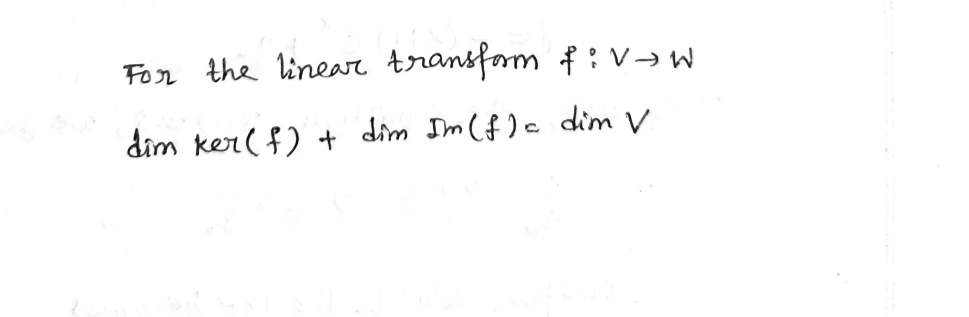 For the linear transform f : V → W
dim ker(f) + dim Im(f) = dim V